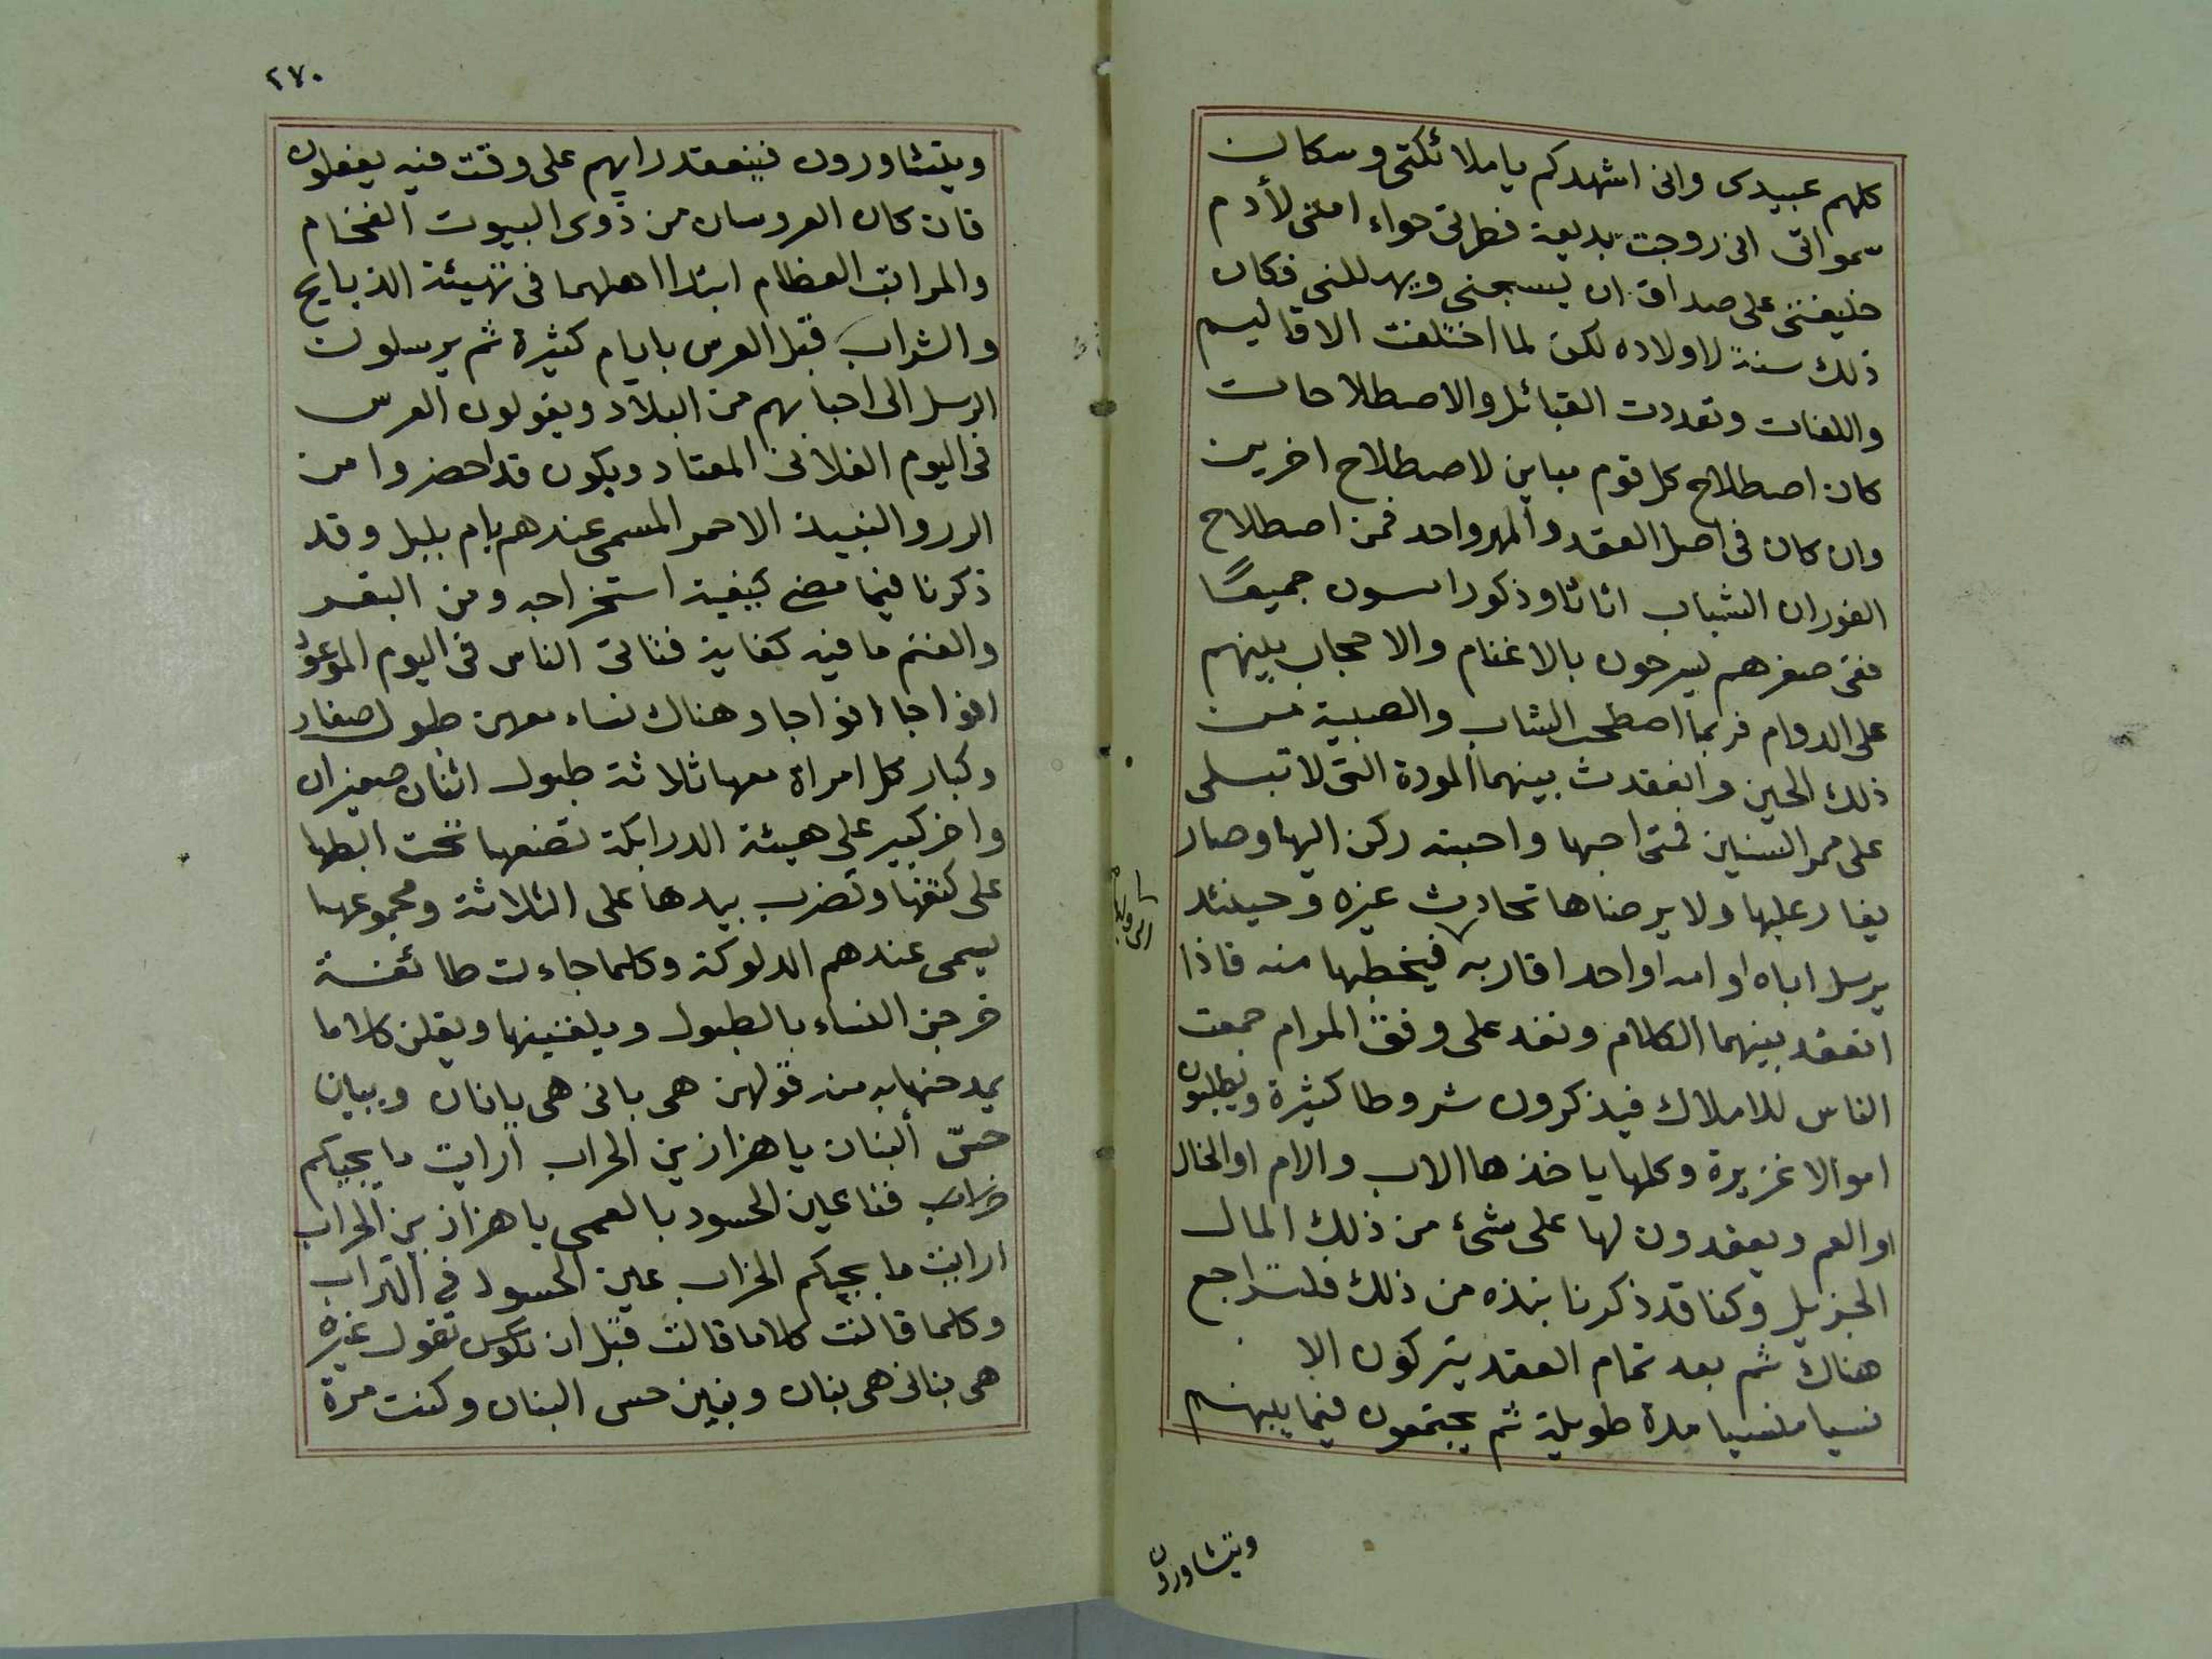 كلهم عبيدى وانى اشهدكم ياملائكتى وسكان
سمواتى انى زوجت بديعة فطرتى حواء امتى لأدم
خليفتى على صداق ان يسبحنى ويهللنى فكان
ذلك سنة لاولاده لكن لما اختلفت الاقاليم
واللغات وتعددت القبائل والاصطلاحات
كان اصطلاح كل قوم مباين لاصطلاح اخرين
وان كان فى اصل العقد والمهر واحد فمن اصطلاح
الفوران الشباب اناثا وذكورا سون جميعًا
ففى صغرهم يسرحون بالاغنام والا حجاب بينهم
على الدوام فربما اصطحب الشاب والصبية من
ذلك الحين وانعقدت بينهما المودة التى لا تبلى
على ممر السنين فمتى احبها واحبته ركن اليها وصار
يغار عليها ولا يرضاها تحادث غيره وحينئذ
يرسل اباه او امه او احد اقاربه فيخطبها منه فاذا
انعقد بينهما الكلام ونفذ على وفق المرام جمعت
الناس للاملاك فيذكرون شروطا كثيرة ويطلبون
اموالا غزيرة وكلها ياخذها الاب والام او الخال
او العم ويعقدون لها على شئ من ذلك المال
الجزيل وكنا قد ذكرنا نبذه من ذلك فلتراجع
هناك ثم بعد تمام العقد يتركون الا
نسيا منسيا مدة طويلة ثم يجتمعون فيما بينهم
ويتشاورون
٢٧٠
ويتشاورون فينعقد رايهم على وقت فيه يفعلون
فان كان العروسان من ذوى البيوت الفخام
والمراتب العظام ابتدا اهلهما فى تهيئة الذبايح
والشراب قبل العرس بايام كثيرة ثم يرسلون
الرسل الى احبابهم من البلاد ويقولون العرس
فى اليوم الفلانى المعتاد ويكون قد احضروا من
الزر والنبيذ الاحمر المسمى عندهم بام بلبل وقد
ذكرنا فيما مضى كيفية استخراجه ومن البقر
والغنم ما فيه كفاية فتاتى الناس فى اليوم الموعود
افواجا افواجا وهناك نساء معهن طبول صغار
وكبار كل امراة معها ثلاثة طبول اثنان صغيران
واخر كبير على هيئة الدرابكة تضعها تحت ابطها
على كتفها وتضرب بيدها على الثلاثة ومجموعها
يسمى عندهم الدلوكة وكلما جاءت طائفة
خرجن النساء بالطبول ويلقينها ويقلن كلاما
يمدحنها به من قولهن هى بانى هى يابنان وبياين
حسّ البنان يا هزازين الحراب ارايت ما يجيكم
خراب فقا عين الحسود بالعمى يا هزازين الحراب
ارايت ما يجيكم الخراب عين الحسود فى التراب
وكلما قالت كلاما قالت قبل ان تقول غيره
هى بنانى هى بنان وبنين حس البنان وكنت مرة